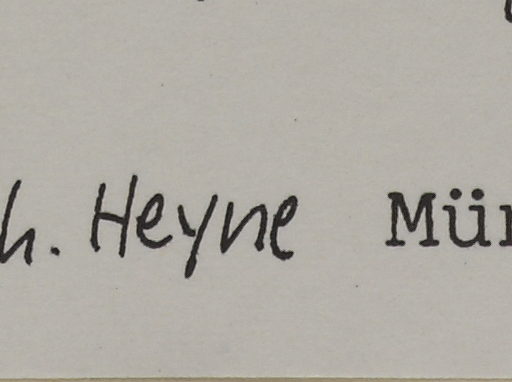 h. Heyne Mün